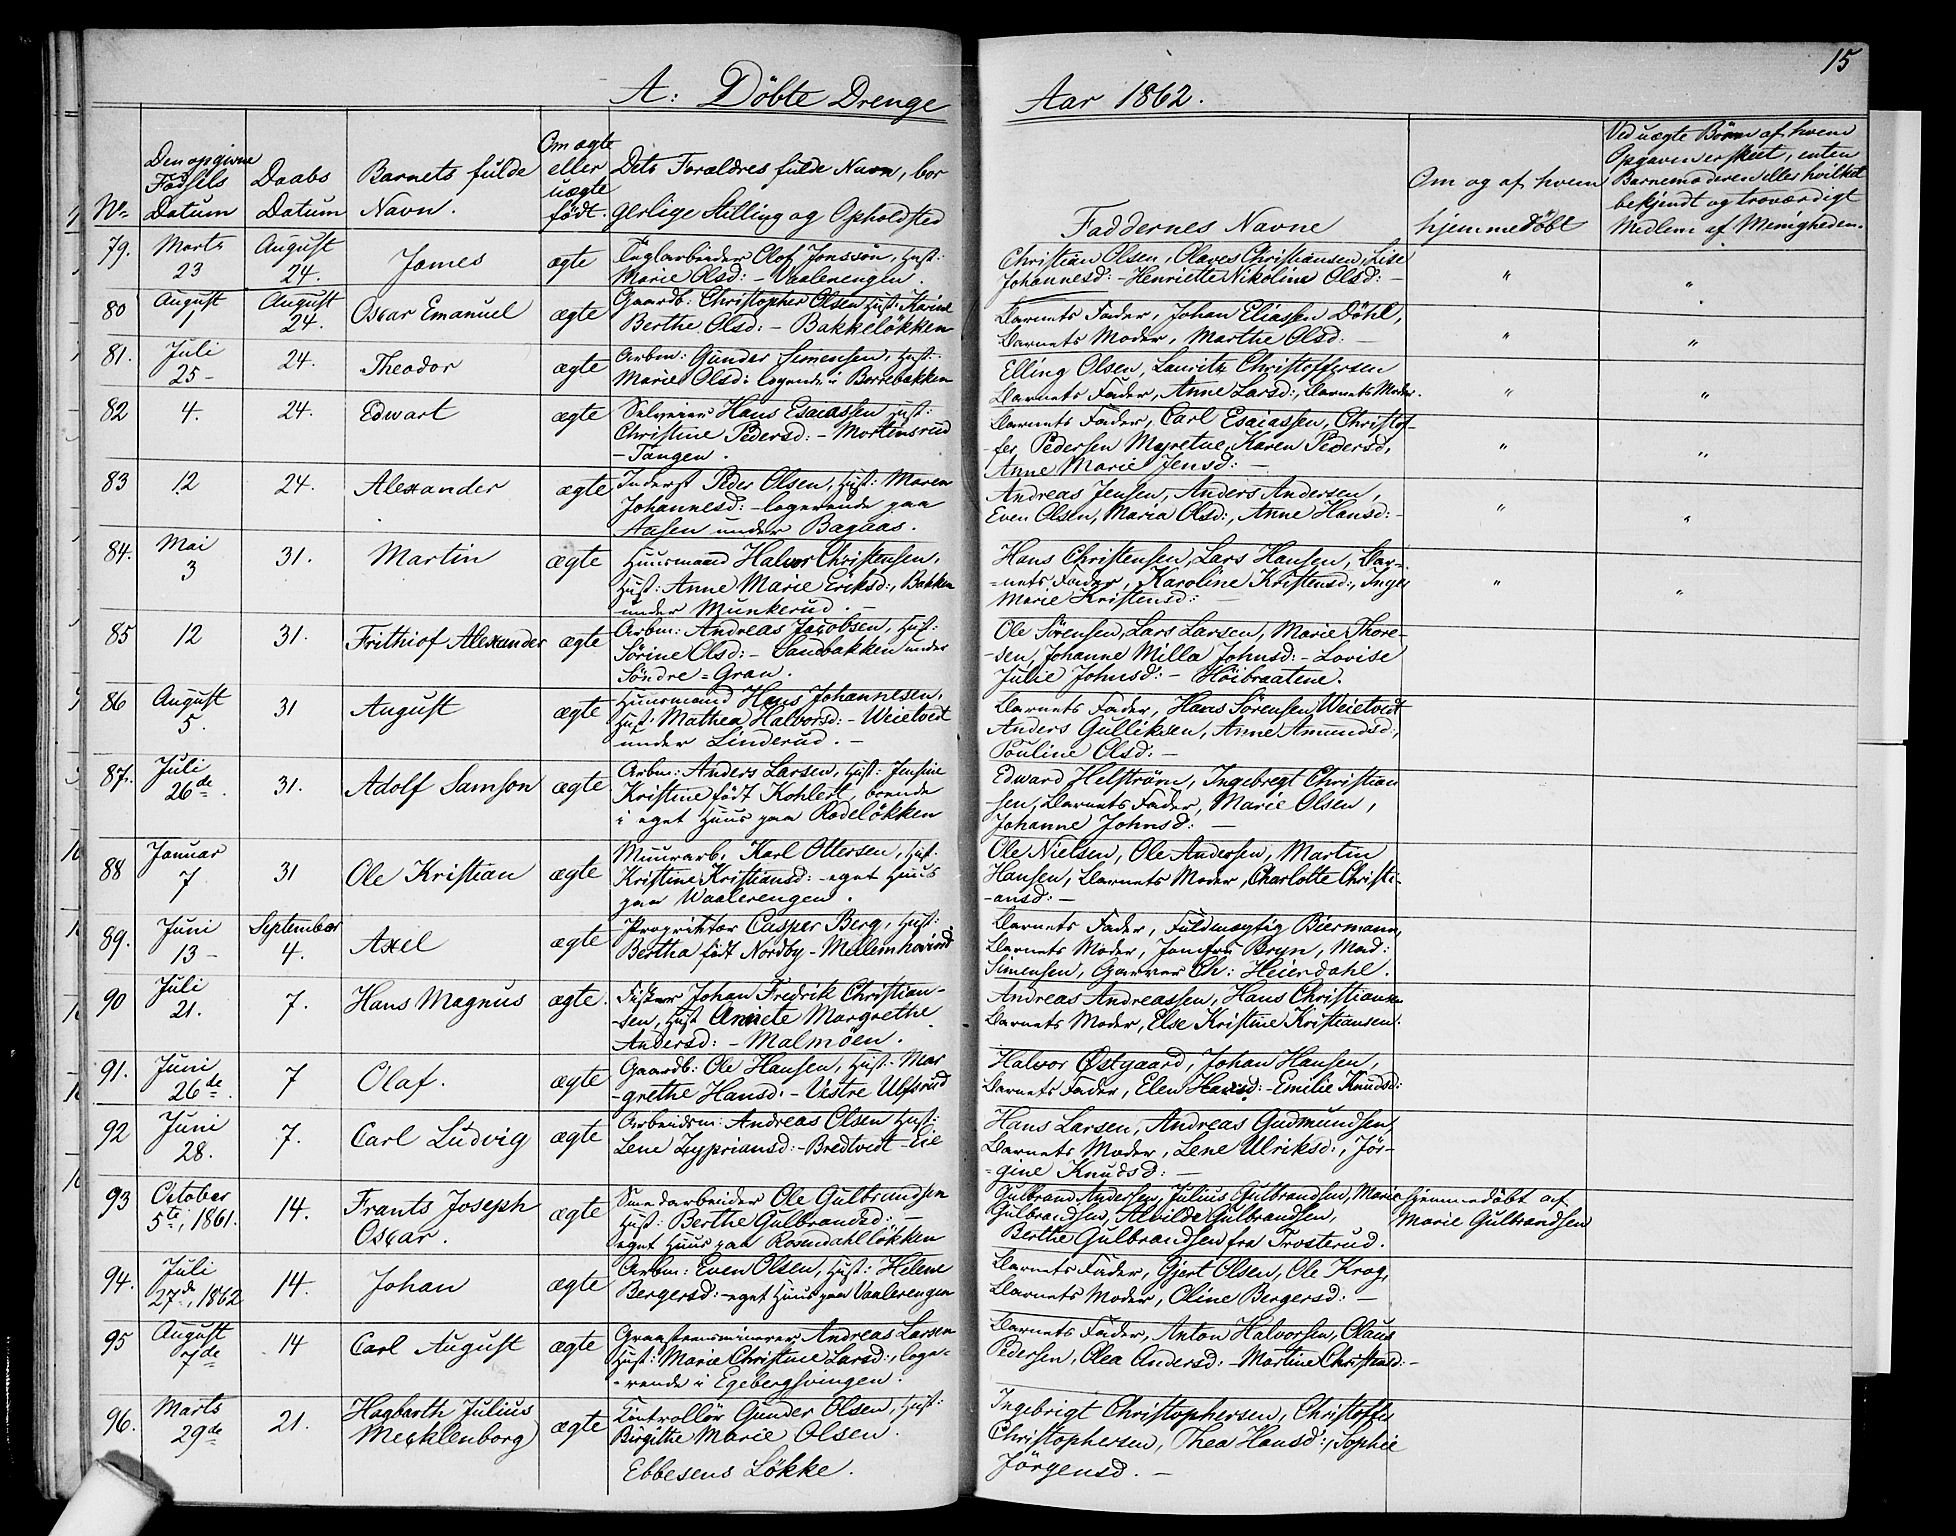 15
A: Döbte Drenge
Aar 1862.
No.
Den opgivne
Födsels
Datum
Daabs
Datum
Barnets fulde
Navn.
Om ægte
eller
uægte
födt.
Dets Forældres fulde Navn, bor
gerlige Stilling og Opholdsted
Faddernes Navne
Om og af hvem
hjemmedöbt
Ved uægte Börn af hvem
Opgaven er skeet, enten
Barnemoderen eller hvilket
bekjendt og troværdigt
Medlem af Menigheden.
79.
Marts
23
August
24.
James
ægte
Teglarbeider Olof Jonssön, Hust:
Marie Olsd: - Vaalerengen.
Christian Olsen, Olaves Christiansen, Lise
Johannesd: - Henriette Nikoline Olsd: -
"
"
80
August
1
August
24.
Oscar Emanuel
ægte
Gaardb: Christopher Olsen Hust: Karine
Berthe Olsd: - Bakkelökken
Barnets Fader, Johan Eliassen Döhl,
Barnets Moder, Marthe Olsd: -
"
"
81.
Juli
25 -
24.
Theodor
ægte
Arbm: Gunder Simensen, Hust:
Marie Olsd: logende i Borrebakken
Elling Olsen, Lauritz Christoffersen
Barnets Fader, Anne Larsd:, Barnets Moder.
"
"
82
4.
24.
Edwart
ægte
Selveier Hans Esaiassen Hust:
Christine Pedersd: - Mortensrud
- Tangen.
Barnets Fader, Carl Esaiassen, Christof-
fer Pedersen Myretue, Karen Pedersd,
Anne Marie Jensd: -
"
"
83
12
24.
Alexander
ægte
Inderst Peder Olsen, Hust: Maren
Johannesd: - logerende paa
Aasen under Bagaas.
Andreas Jensen, Anders Andersen,
Even Olsen, Maria Olsd:, Anne Hansd: -
"
"
84.
Mai
3
31.
Martin
ægte
Huusmand Halvor Christensen,
Hust: Anne Marie Eriksd:, Bakken
under Munkerud. -
Hans Christensen, Lars Hansen, Bar-
-nets Fader, Karoline Kristensd:, Inger
Marie Kristensd: -
"
"
85
12
31.
Frithiof Alexander
ægte
Arbm: Andreas Jacobsen, Hust:
Sörine Olsd: - Sandbakken under
Söndre-Gran.
Ole Sörensen, Lars Larsen, Marie Thore-
-sen, Johanne Milla Johnsd: - Lovise
Julie Johnsd: - Höibraatene.
86
August
5.
31
August
ægte
Huusmand Hans Johannesen,
Hust: Mathea Halvorsd: - Weitvedt
under Linderud. -
Barnets Fader, Hans Sörensen Weitvedt
Anders Gulliksen, Anne Amundsd:,
Pouline Olsd: -
87.
Juli
26de.
31.
Adolf Samson
ægte
Arbm: Anders Larsen, Hust: Jensine
Kristine födt Kohlert, boende
i eget Huus paa Rodelökken
Edward Helström, Ingebregt Christian
sen, Barnets Fader, Marie Olsen,
Johanne Johnsd: -
88
Januar
7
31
Ole Kristian
ægte
Muurarb. Karl Ottersen, Hust:
Kristine Kristiansd: - eget Huus
paa Waalerengen.
Ole Nielsen, Ole Andersen, Martin
Hansen, Barnets Moder, Charlotte Christi-
-ansd: -
89.
Juni
13 -
September
4.
Axel
ægte
Propritær Casper Berg, Hust:
Bertha födt Nordby - Mellemhovind
Barnets Fader, Fuldmægtig Biermann,
Barnets Moder, Jomfru Bryn, Mad:
Simensen, Garver Ch: Heierdahl.
90
Juli
21.
7.
Hans Magnus
ægte.
Fisker Johan Fredrik Christian-
-sen, Hust Annete Margrethe
Andersd: - Malmöen.
Andreas Andreassen, Hans Christiansen
Barnets Moder, Else Kristine Kristiansen.
91.
Juni
26de.
7
Olaf.
ægte
Gaardb: Ole Hansen, Hust: Mar
-grethe Hansd: - Vestre Ulfsrud
Halvor Østgaard, Johan Hansen,
Barnets Fader, Elen Hansd: - Emilie Knudsd:
92
Juni
28.
7.
Carl Ludvig
ægte
Arbeidsm: Andreas Olsen Hust:
Lene Zypriansd: - Bredtvedt-Eie
Hans Larsen, Andreas Gudmundsen
Barnets Moder, Lene Ulriksd:, Jör-
-gine Knudsd: -
93
October
5te, 1861.
14.
Frants Joseph
Oscar.
ægte
Smedarbeider Ole Gulbrandsen
Hust: Berthe Gulbrandsd: -
eget Huus paa Rosendahllökken
Gulbrand Andersen, Julius Gulbrandsen, Marie
Gulbrandsen, Alvilde Gulbrandsen,
Berthe Gulbrandsen fra Trosterud.
Hjemmedöbt af
Marie Gulbrandsen
94.
Juli
27de, 1862
14.
Johan
ægte
Arbm: Even Olsen, Hust: Helene
Bergersd: - eget Huus paa Vaalerengen
Barnets Fader, Gjert Olsen, Ole Krog,
Barnets Moder, Oline Bergersd: -
95
August
7de
14
Carl August
ægte
Graastensminerer Andreas Larsen
Hust: Marie Christine Larsd:, loge-
-rende i Egebergsvingen.
Barnets Fader, Anton Halvorsen, Olaus
Pedersen, Olea Andersd: - Martine Christensd: -
96.
Marts
29de
21.
Hagbarth Julius
Mecklenborg
ægte
Kontrollör Gunder Olsen, Hust:
Birgithe Marie Olsen.
Ebbesens Lökke.
Ingebrigt Christophersen, Christoffer
Christophersen, Thea Hansd:, Sophie
Jörgensd. -